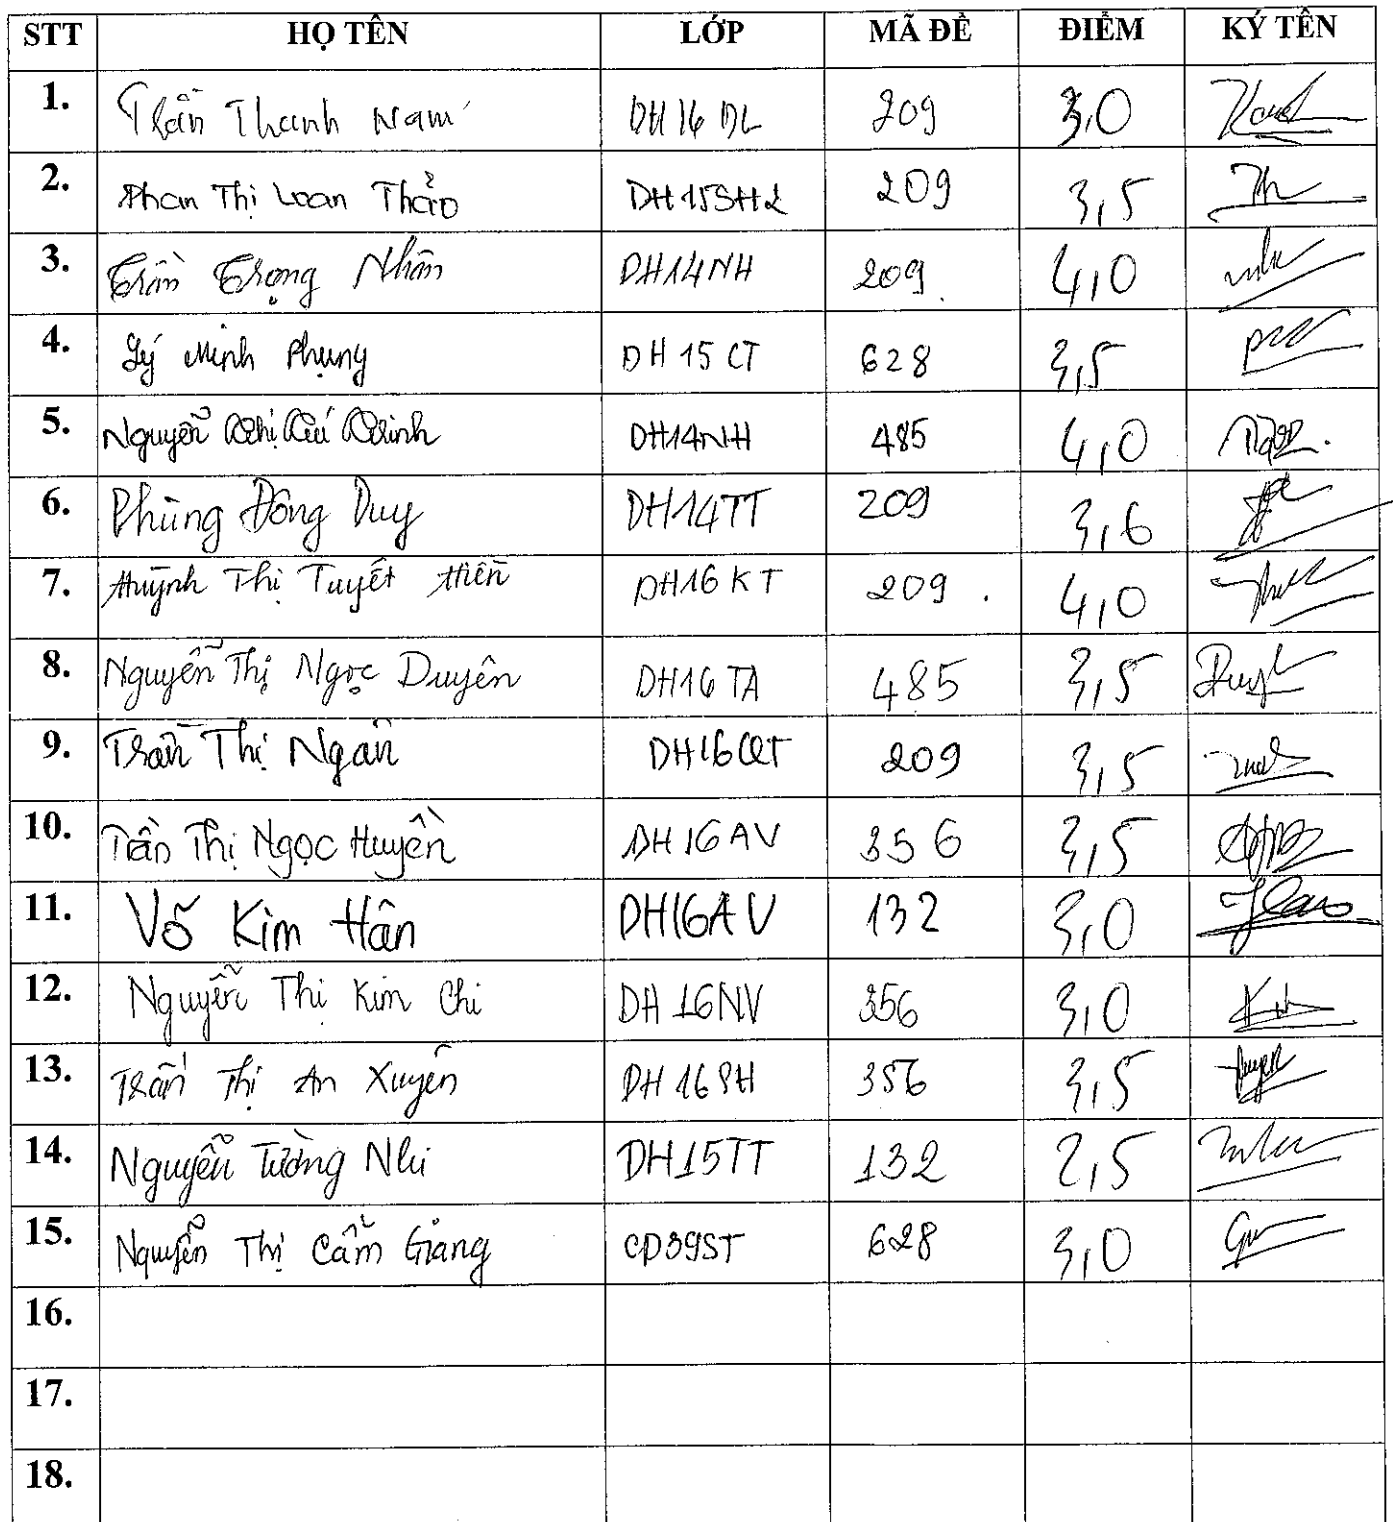 STT HỌ TÊN LỚP MÃ ĐỀ ĐIỂM KÝ TÊN
1. Trần Thanh Nam DH16DL 209 3,0
2. Phan Thị Loan Thảo DH15SH2 209 3,5
3. Trần Trọng Nhân DH14NH 209 4,0
4. Lý Minh Phụng DH15CT 628 3,5
5. Nguyễn Thị Tú Trinh DH14NH 485 4,0
6. Phùng Đông Duy DH14TT 209 3,6
7. Huỳnh Thị Tuyết Hiền DH16KT 209 4,0
8. Nguyễn Thị Ngọc Duyên DH16TA 485 3,5 Duy
9. Trần Thị Ngân DH16QT 209 3,5
10. Trần Thị Ngọc Huyền DH16AV 356 3,5
11. Võ Kim Hân DH16AV 132 3,0
12. Nguyễn Thị Kim Chi DH16NV 356 3,0
13. Trần Thị An Xuyên DH16PH 356 3,5
14. Nguyễn Tường Nhi DH15TT 132 2,5
15. Nguyễn Thị Cẩm Giang CD39ST 628 3,0
16.
17.
18.